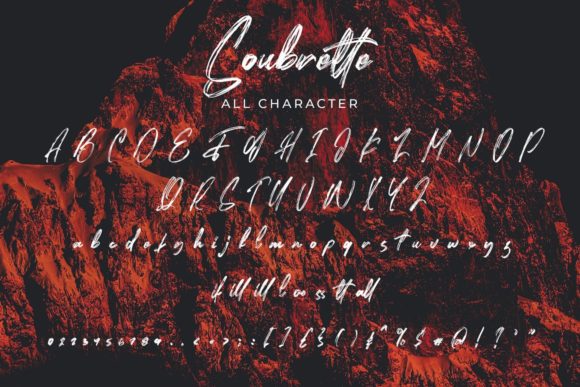 Soubrette
ALL CHARACTER
A B C D E F G H I J K L M N O P
Q R S T U V W X Y Z
a b c d e f g h i j k l m n o p q r s t u v w x y z
0 1 2 3 4 5 6 7 8 9 . , < > ? ; : [ ] { } ( ) ^ % $ # @ ! ? ' "